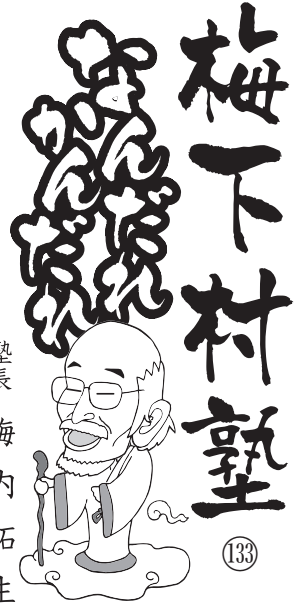 梅下村塾
133
なんだれ
かんだれ
塾長 梅内拓生